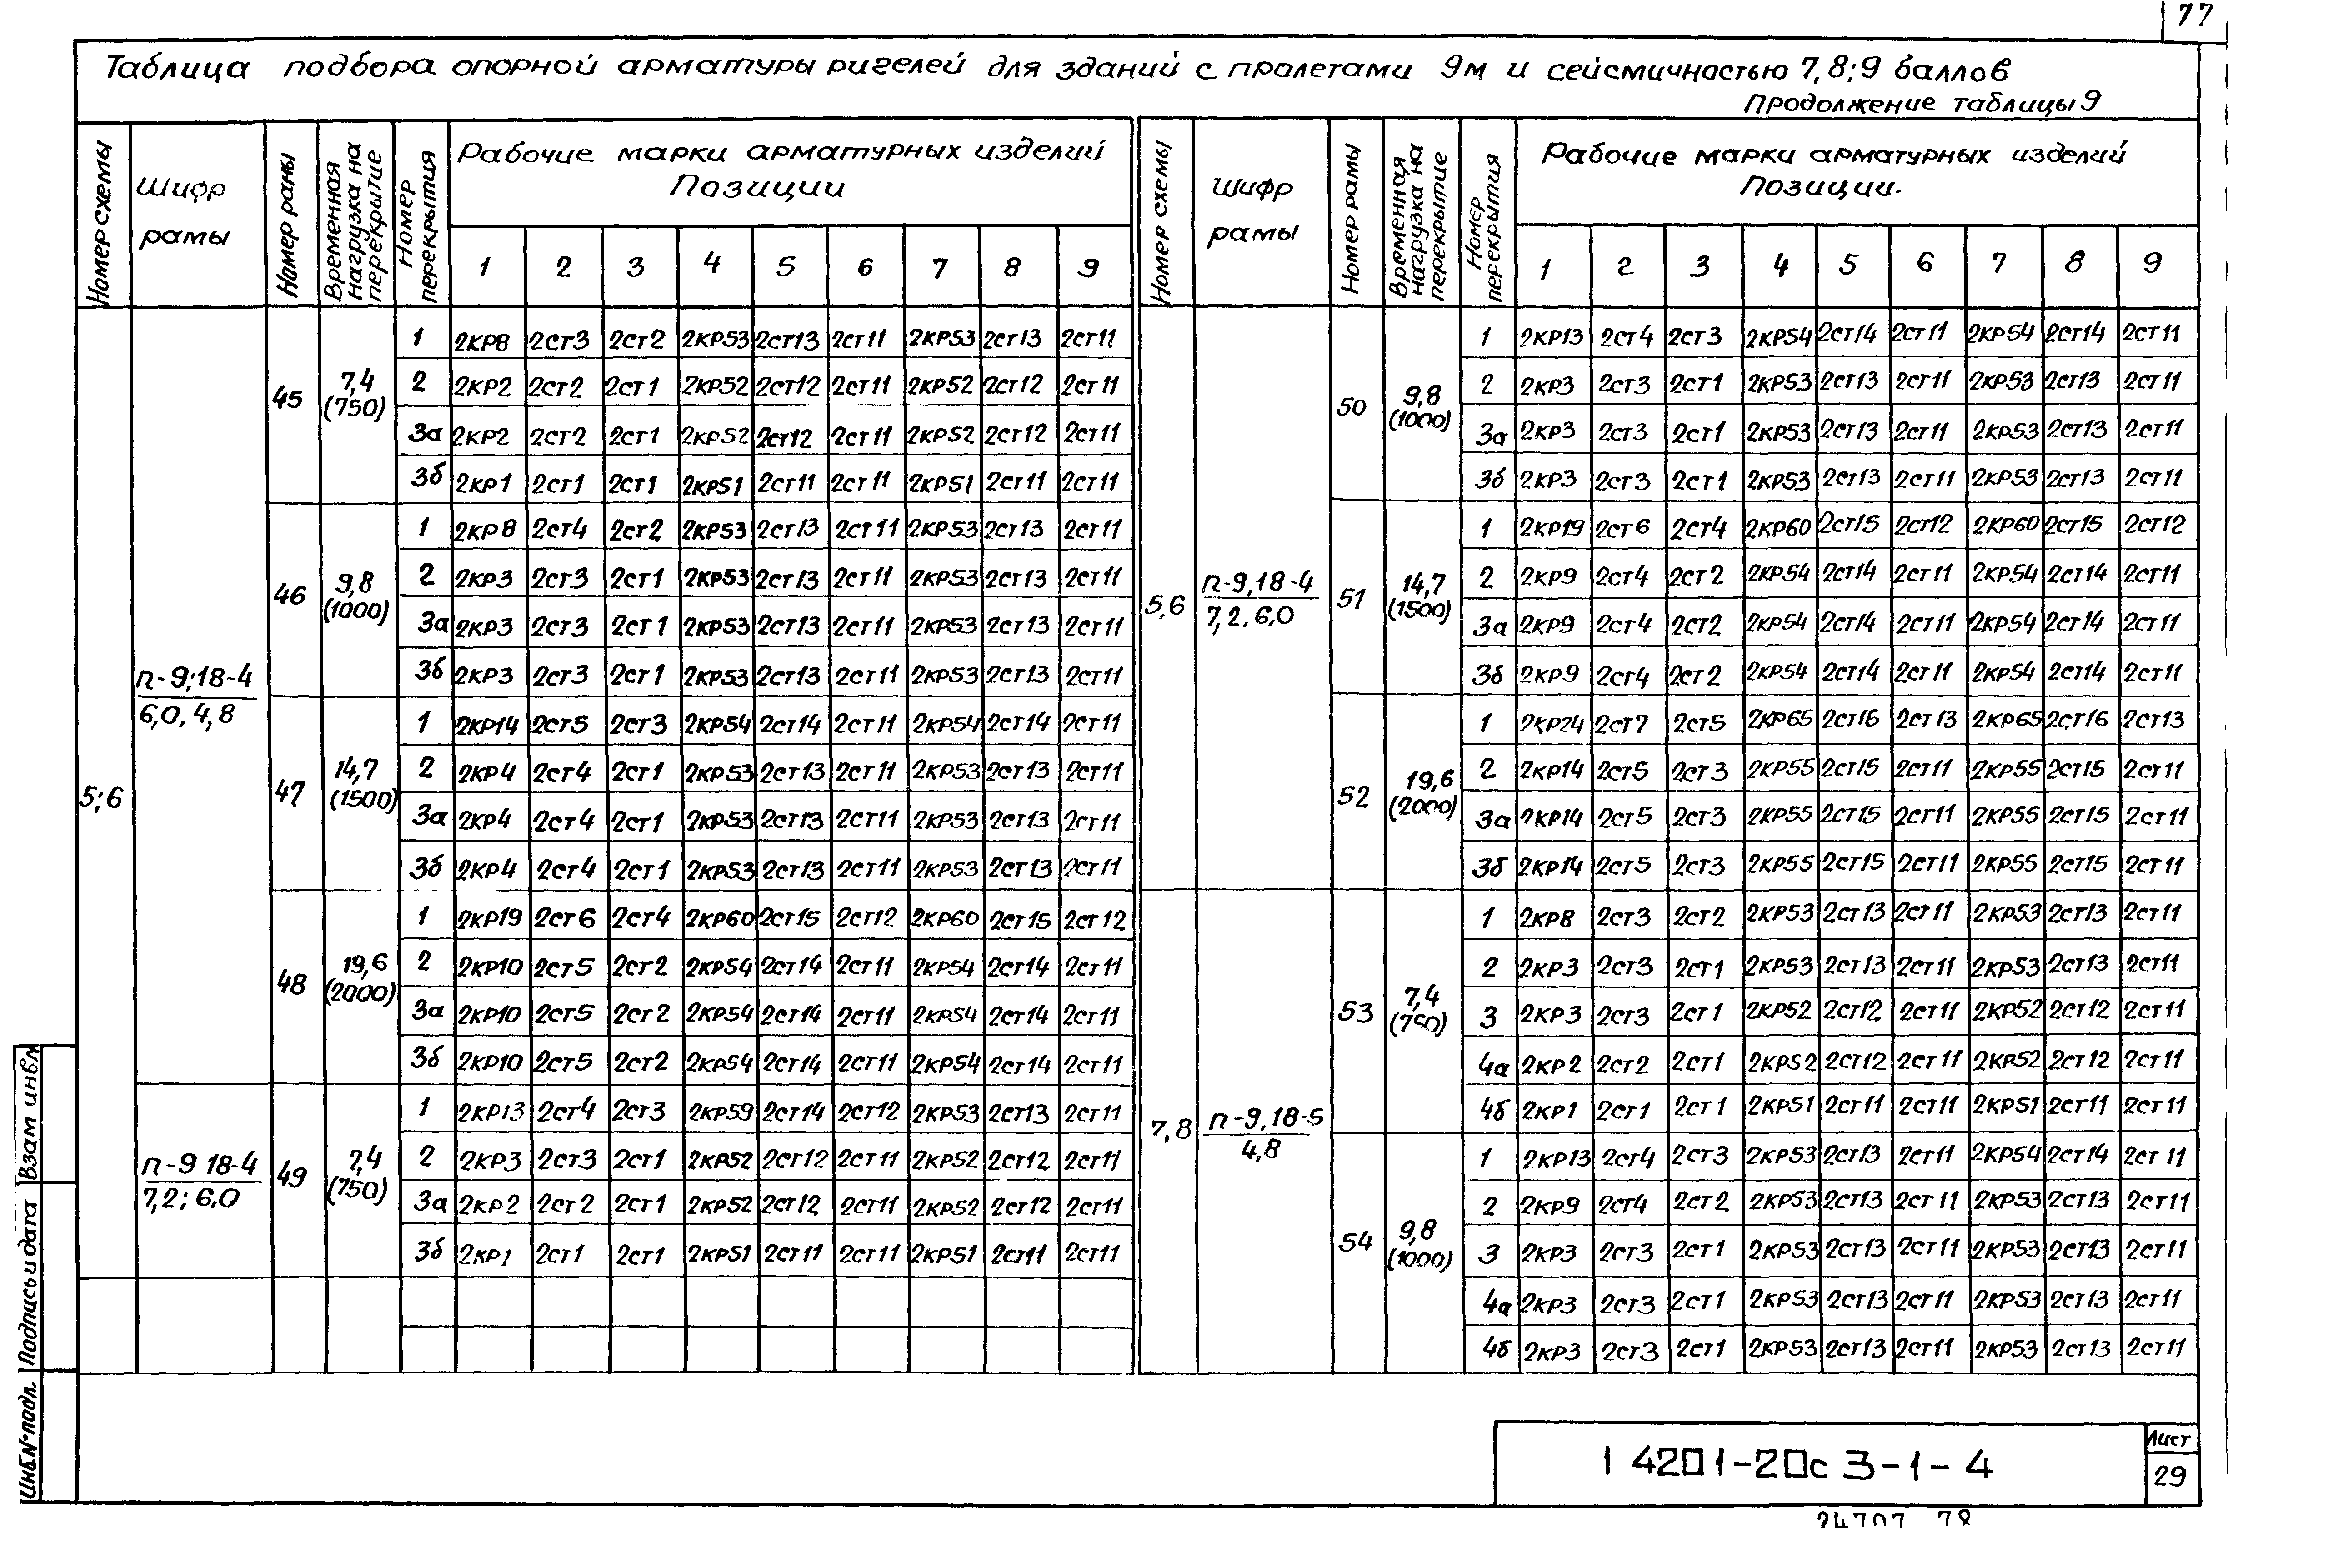 77
Таблица подбора опорной арматуры ригелей для зданий с пролетами 9м и сейсмичностью 7,8;9 баллов
Продолжение таблицы 9
Номер схемы
Шифр рамы
Номер рамы
Временная нагрузка на перекрытие
Номер перекрытия
Рабочие марки арматурных изделий
Позиции
1 2 3 4 5 6 7 8 9
5;6
п-9;18-4
6,0, 4,8
45 7,4 (750)
1 2кр8 2ст3 2ст2 2кр53 2ст13 2ст11 2кр53 2ст13 2ст11
2 2кр2 2ст2 2ст1 2кр52 2ст12 2ст11 2кр52 2ст12 2ст11
3а 2кр2 2ст2 2ст1 2кр52 2ст12 2ст11 2кр52 2ст12 2ст11
3б 2кр1 2ст1 2ст1 2кр51 2ст11 2ст11 2кр51 2ст11 2ст11
46 9,8 (1000)
1 2кр8 2ст4 2ст2 2кр53 2ст13 2ст11 2кр53 2ст13 2ст11
2 2кр3 2ст3 2ст1 2кр53 2ст13 2ст11 2кр53 2ст13 2ст11
3а 2кр3 2ст3 2ст1 2кр53 2ст13 2ст11 2кр53 2ст13 2ст11
3б 2кр3 2ст3 2ст1 2кр53 2ст13 2ст11 2кр53 2ст13 2ст11
47 14,7 (1500)
1 2кр14 2ст5 2ст3 2кр54 2ст14 2ст11 2кр54 2ст14 2ст11
2 2кр4 2ст4 2ст1 2кр53 2ст13 2ст11 2кр53 2ст13 2ст11
3а 2кр4 2ст4 2ст1 2кр53 2ст13 2ст11 2кр53 2ст13 2ст11
3б 2кр4 2ст4 2ст1 2кр53 2ст13 2ст11 2кр53 2ст13 2ст11
48 19,6 (2000)
1 2кр19 2ст6 2ст4 2кр60 2ст15 2ст12 2кр60 2ст15 2ст12
2 2кр10 2ст5 2ст2 2кр54 2ст14 2ст11 2кр54 2ст14 2ст11
3а 2кр10 2ст5 2ст2 2кр54 2ст14 2ст11 2кр54 2ст14 2ст11
3б 2кр10 2ст5 2ст2 2кр54 2ст14 2ст11 2кр54 2ст14 2ст11
п-9 18-4
7,2; 6,0
49 7,4 (750)
1 2кр13 2ст4 2ст3 2кр59 2ст14 2ст12 2кр53 2ст13 2ст11
2 2кр3 2ст3 2ст1 2кр52 2ст12 2ст11 2кр52 2ст12 2ст11
3а 2кр2 2ст2 2ст1 2кр52 2ст12 2ст11 2кр52 2ст12 2ст11
3б 2кр1 2ст1 2ст1 2кр51 2ст11 2ст11 2кр51 2ст11 2ст11
Номер схемы
Шифр рамы
Номер рамы
Временная нагрузка на перекрытие
Номер перекрытия
Рабочие марки арматурных изделий
Позиции.
1 2 3 4 5 6 7 8 9
5,6
п-9,18-4
7,2, 6,0
50 9,8 (1000)
1 2кр13 2ст4 2ст3 2кр54 2ст14 2ст11 2кр54 2ст14 2ст11
2 2кр3 2ст3 2ст1 2кр53 2ст13 2ст11 2кр53 2ст13 2ст11
3а 2кр3 2ст3 2ст1 2кр53 2ст13 2ст11 2кр53 2ст13 2ст11
3б 2кр3 2ст3 2ст1 2кр53 2ст13 2ст11 2кр53 2ст13 2ст11
51 14,7 (1500)
1 2кр19 2ст6 2ст4 2кр60 2ст15 2ст12 2кр60 2ст15 2ст12
2 2кр9 2ст4 2ст2 2кр54 2ст14 2ст11 2кр54 2ст14 2ст11
3а 2кр9 2ст4 2ст2 2кр54 2ст14 2ст11 2кр54 2ст14 2ст11
3б 2кр9 2ст4 2ст2 2кр54 2ст14 2ст11 2кр54 2ст14 2ст11
52 19,6 (2000)
1 2кр24 2ст7 2ст5 2кр65 2ст16 2ст13 2кр65 2ст16 2ст13
2 2кр14 2ст5 2ст3 2кр55 2ст15 2ст11 2кр55 2ст15 2ст11
3а 2кр14 2ст5 2ст3 2кр55 2ст15 2ст11 2кр55 2ст15 2ст11
3б 2кр14 2ст5 2ст3 2кр55 2ст15 2ст11 2кр55 2ст15 2ст11
7,8
п-9,18-5
4,8
53 7,4 (750)
1 2кр8 2ст3 2ст2 2кр53 2ст13 2ст11 2кр53 2ст13 2ст11
2 2кр3 2ст3 2ст1 2кр53 2ст13 2ст11 2кр53 2ст13 2ст11
3 2кр3 2ст3 2ст1 2кр52 2ст12 2ст11 2кр52 2ст12 2ст11
4а 2кр2 2ст2 2ст1 2кр52 2ст12 2ст11 2кр52 2ст12 2ст11
4б 2кр1 2ст1 2ст1 2кр51 2ст11 2ст11 2кр51 2ст11 2ст11
54 9,8 (1000)
1 2кр13 2ст4 2ст3 2кр53 2ст13 2ст11 2кр54 2ст14 2ст11
2 2кр9 2ст4 2ст2 2кр53 2ст13 2ст11 2кр53 2ст13 2ст11
3 2кр3 2ст3 2ст1 2кр53 2ст13 2ст11 2кр53 2ст13 2ст11
4а 2кр3 2ст3 2ст1 2кр53 2ст13 2ст11 2кр53 2ст13 2ст11
4б 2кр3 2ст3 2ст1 2кр53 2ст13 2ст11 2кр53 2ст13 2ст11
Взам инв.№
Подпись и дата
Инв.№ подл.
1 4201-20с 3-1-4
Лист
29
24707 78